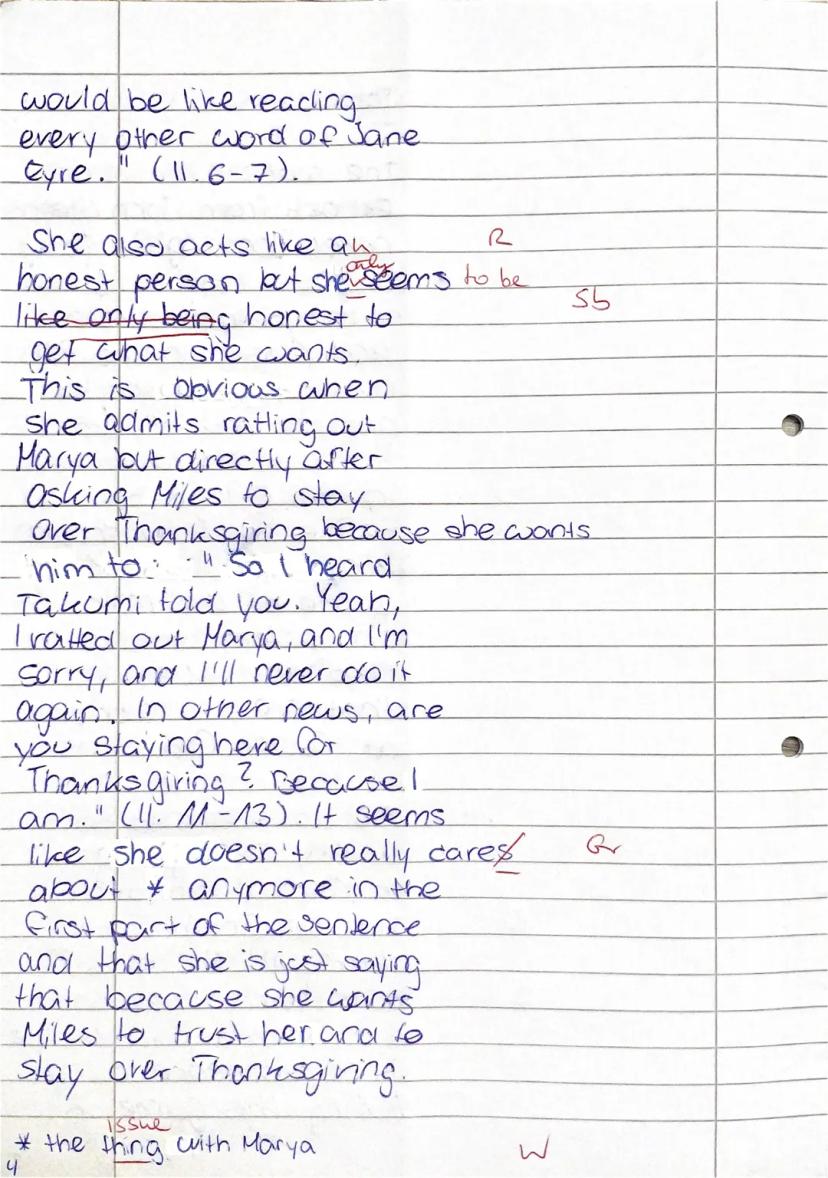 would be like reading
every other word of Jane
Eyre." (ll. 6-7).
She also acts like an R
only
honest person but she seems to be
Sb
like only being honest to
get what she wants.
This is obvious when
she admits ratting out
Marya but directly after
asking Miles to stay
over Thanksgiving because she wants
him to: "So I heard
Takumi told you. Yeah,
I ratted out Marya, and I'm
sorry, and I'll never do it
again. In other news, are
you staying here for
Thanksgiving? Because I
am." (ll. 11-13). It seems
like she doesn't really cares Gr
about * anymore in the
first part of the sentence
and that she is just saying
that because she wants
Miles to trust her and to
stay over Thanksgiving.
issue
* the thing with Marya W
4